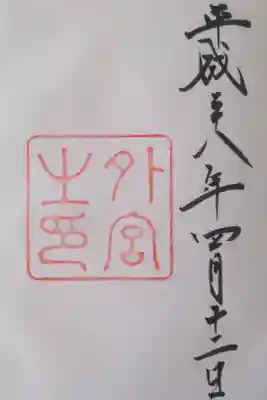 平成二十八年四月十二日
外宮
之印